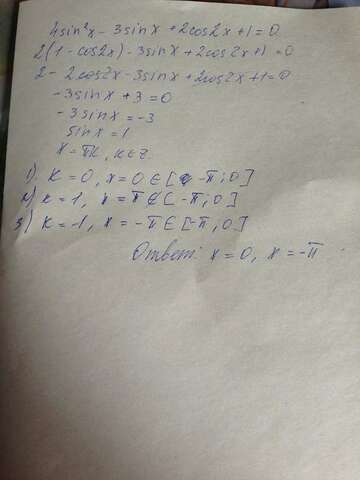 4sin²x - 3sinx + 2cos2x + 1 = 0
2(1 - cos2x) - 3sinx + 2cos2x + 1 = 0
2 - 2cos2x - 3sinx + 2cos2x + 1 = 0
-3sinx + 3 = 0
-3sinx = -3
sinx = 1
x = πk, k∈Z.
1). k = 0, x = 0 ∈ [-π; 0]
2) k = 1, x = π ∉ [-π; 0]
3) k = -1, x = -π ∈ [-π; 0]
Ответ: x = 0, x = -π